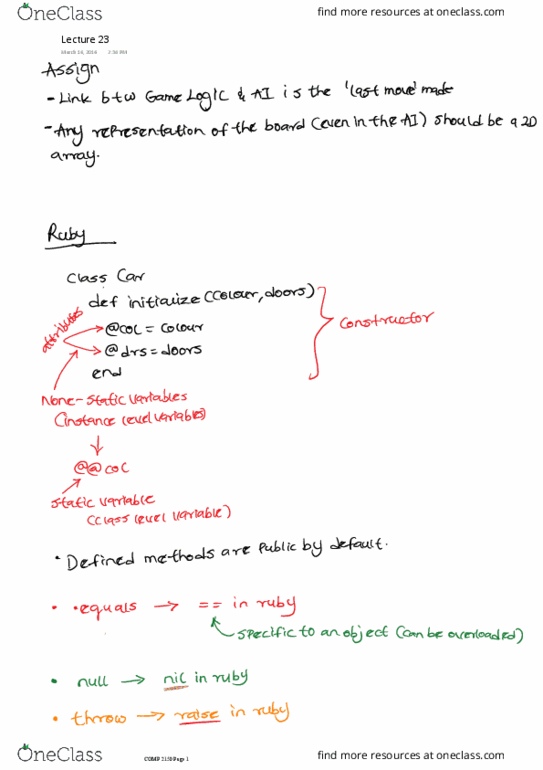 OneClass
find more resources at oneclass.com
Lecture 23
March 14, 2016
Assign
- Link btw Game Logic & AI is the 'last move' made
- Any representation of the board (even in the AI) should be a 2D
array.
Ruby
class Car
def initialize (colour, doors)
attributes
@col = colour
@drs = doors
end
constructor
None-static variables
(instance level variables)
@@col
static variable
(class level variable)
• Defined methods are public by default.
• .equals → == in ruby
specific to an object (can be overloaded)
• null → nil in ruby
• throw → raise in ruby
OneClass
COMP 2150 Page 1
find more resources at oneclass.com